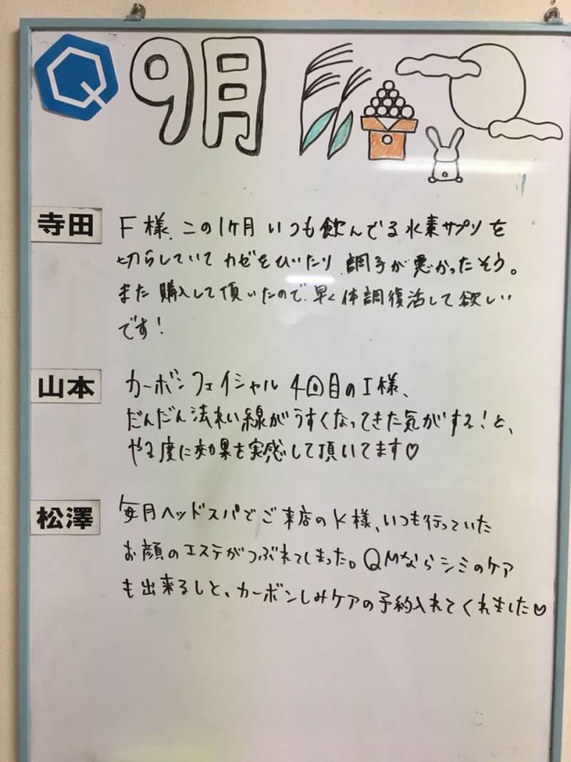 Q 9月
寺田
F様、この1ヶ月いつも飲んでる水素サプリを
切らしていてカゼをひいたり調子が悪かったそう。
また購入して頂いたので、早く体調復活して欲しい
です!
山本
カーボンフェイシャル4回目のI様、
だんだん法れい線がうすくなってきた気がする!と、
やる度に効果を実感して頂いてます♡
松澤
毎月ヘッドスパでご来店のK様、いつも行っていた
お顔のエステがつぶれてしまった。QMならシミのケア
も出来るしと、カーボンしみケアの予約入れてくれました♡